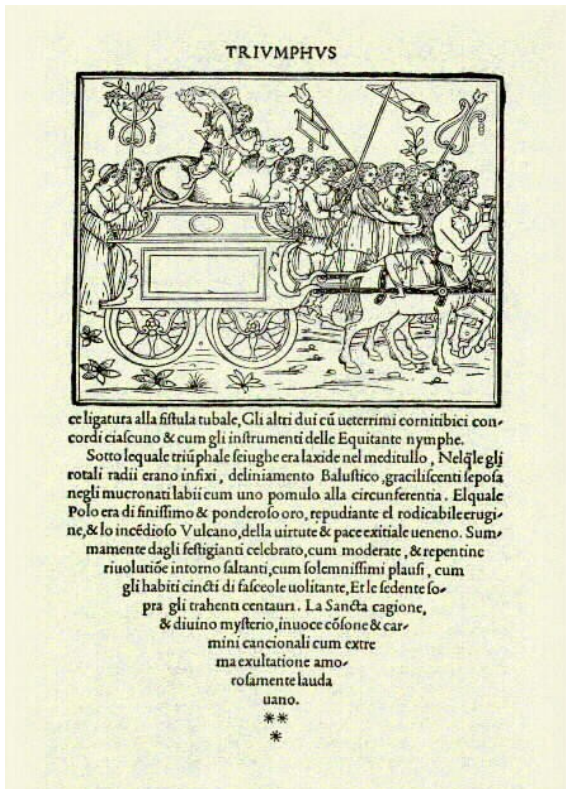 TRIVMPHVS
ce ligatura alla fistula tubale, Gli altri dui cū ueterrimi cornitibici con-
cordi ciascuno & cum gli instrumenti delle Equitante nymphe.
Sotto lequale triūphale seiughe era laxide nel meditullo, Nelq̄le gli
rotali radii erano infixi, deliniamento Balustico, graciliscenti seposa
negli mucronati labii cum uno pomulo alla circunferentia. Elquale
Polo era di finissimo & ponderoso oro, repudiante el rodicabile erugi-
ne, & lo incēdioso Vulcano, della uirtute & pace exitiale ueneno. Sum-
mamente dagli festigianti celebrato, cum moderate, & repentine
riuolutiōe intorno saltanti, cum solemnissimi plausi, cum
gli habiti cincti di fasceole uolitante, Et le sedente so-
pra gli trahenti centauri. La Sancta cagione,
& diuino mysterio, inuoce cōsone & car-
mini cancionali cum extre
ma exultatione amo-
rosamente lauda
uano.
**
*